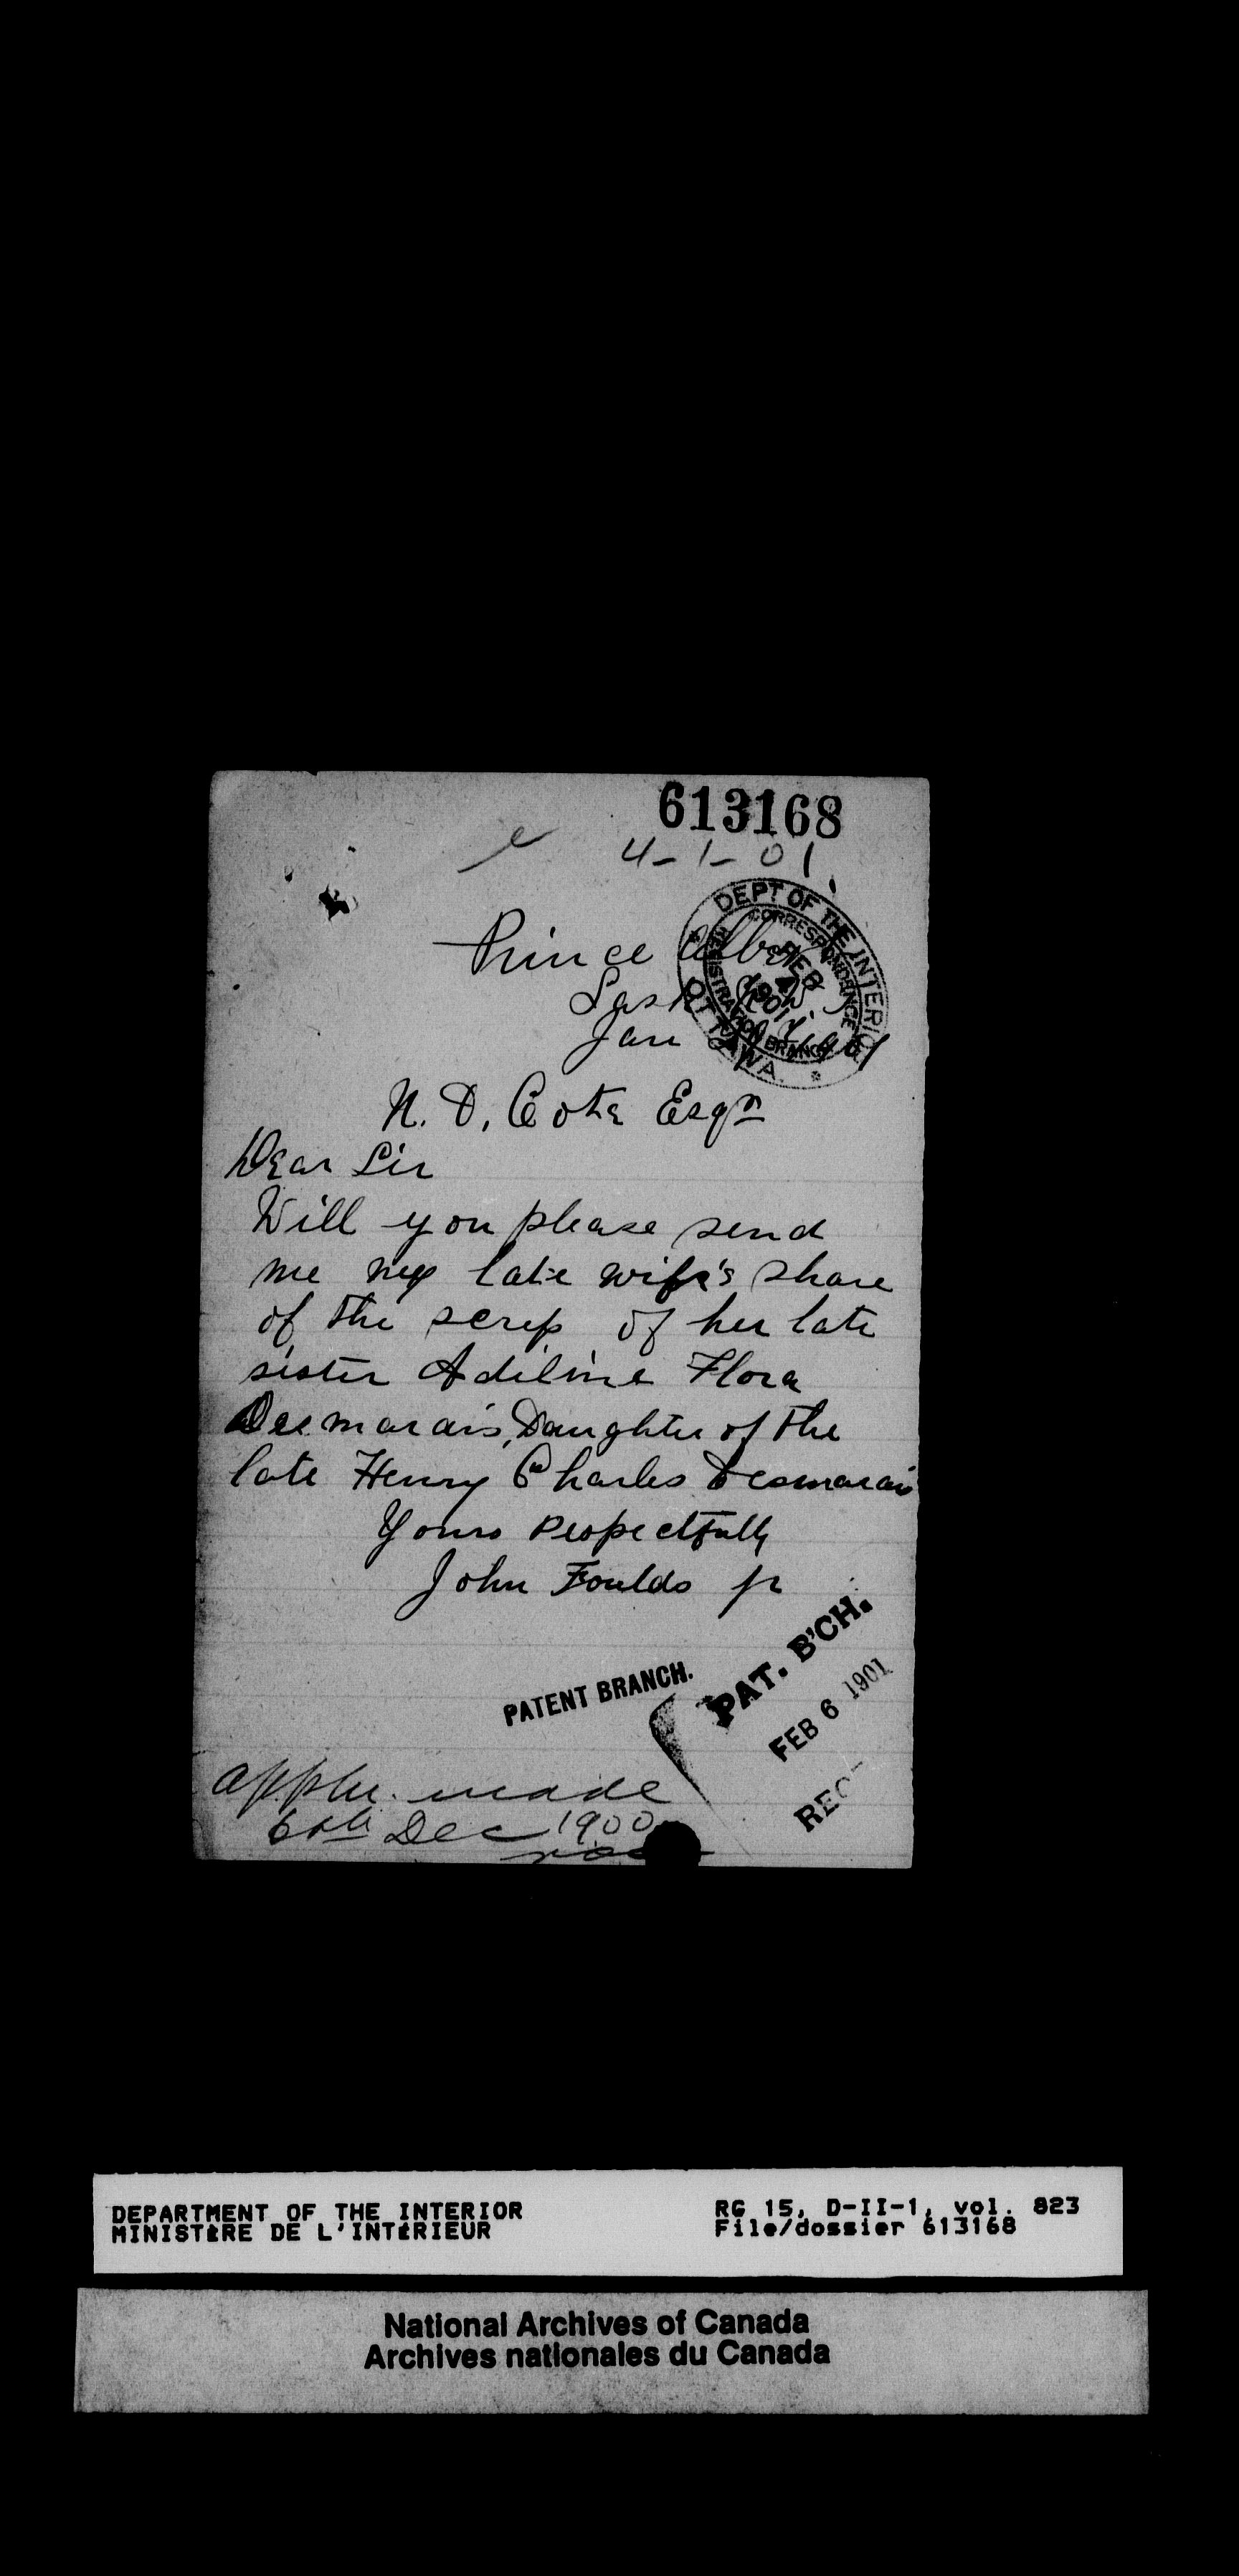 613168
4-1-01
Prince Albert
Sask
Jan
DEPT OF THE INTERIOR
CORRESPONDENCE REGISTRATION BRANCH
FEB 4 1901
OTTAWA.
N. D. Cote Esqr
Dear Sir
Will you please send
me my late wife's share
of the scrip of her late
sister Adiline Flora
Desmarais, Daughter of the
late Henry Charles Desmarais
Yours Respectfully
John Foulds jr
PATENT BRANCH.
PAT. B'CH.
FEB 6 1901
REC
appln. made
6th Dec 1900
DEPARTMENT OF THE INTERIOR
MINISTÈRE DE L'INTÉRIEUR
RG 15, D-II-1, vol. 823
File/dossier 613168
National Archives of Canada
Archives nationales du Canada